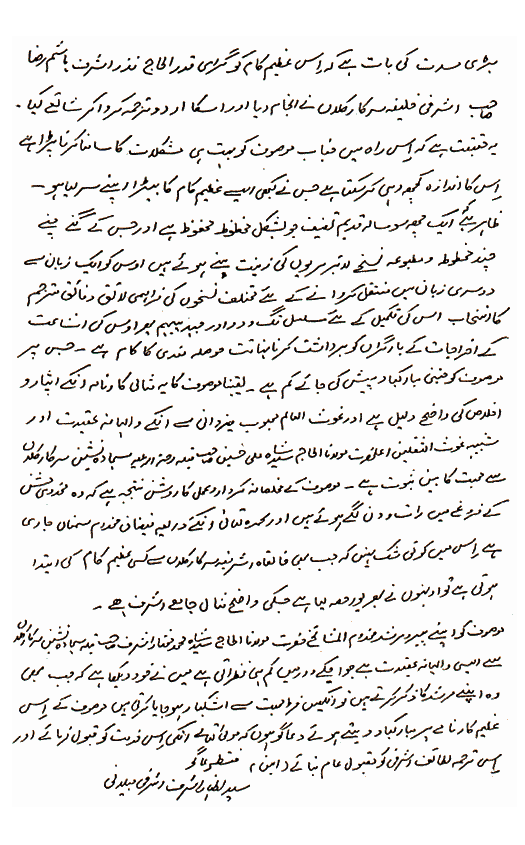 بڑی مسرت کی بات ہے کہ اِس عظیم کام کو گرامی قدر الحاج نذر اشرف ہاشم رضا
صاحب اشرفی خلیفہ سرکار کلاں نے انجام دیا اور اسکا اردو ترجمہ کروا کر شائع کیا۔
یہ حقیقت ہے کہ اِس راہ میں جناب موصوف کو بہت ہی مشکلات کا سامنا کرنا پڑا ہے
اِس کا اندازہ کچھ وہی کر سکتا ہے جس نے کبھی ایسے عظیم کام کا بیڑا اپنے سر لیا ہو۔
ظاہر ہے ایک چھ سو سالہ قدیم تصنیف جو بشکل مخطوطہ محفوظ ہے اور جس کے گنے چنے
چند مخطوطہ و مطبوعہ نسخے لائبریریوں کی زینت بنے ہوئے ہیں اوس کو ایک زبان سے
دوسری زبان میں منتقل کروانے کے لئے مختلف نسخوں کی فراہمی لائق و فائق مترجم
کا انتخاب اس کی تکمیل کے لئے مسلسل تگ و دو اور جہد پیہم پھر اوس کی اشاعت
کے اخراجات کے بار گراں کو برداشت کرنا نہایت حوصلہ مندی کا کام ہے۔ جس پر
موصوف کو جتنی مبارکباد پیش کی جائے کم ہے۔ یقیناً موصوف کا یہ مثالی کارنامہ انکے ایثار و
اخلاص کی واضح دلیل ہے اور غوث العالم محبوب یزدانی سے انکے والہانہ عقیدت اور
شبیہہ غوث الثقلین اعلحضرت مولانا الحاج سید شاہ علی حسین صاحب قبلہ رحمۃ اللہ علیہ سجادہ نشین سرکار کلاں
سے محبت کا بین ثبوت ہے۔ موصوف کے مخلصانہ کردار و عمل کا روشن نتیجہ ہے کہ وہ مخدومی مشن
کے فروغ میں رات و دن لگے ہوئے ہیں اور بحمدہ تعالیٰ انکے ذریعہ فیضان مخدوم سمنان جاری
ہے اِس میں کوئی شک نہیں کہ جب بھی خانقاہ اشرفیہ سرکار کلاں سے کسی عظیم کام کی ابتدا
ہوتی ہے تو انہوں نے بھرپور حصہ لیا ہے جسکی واضح مثال جامع اشرف ہے۔
موصوف کو اپنے پیر و مرشد مخدوم المشائخ حضرت مولانا الحاج سید شاہ محمد مختار اشرف صاحب قبلہ سجادہ نشین سرکار کلاں
سے ایسی والہانہ عقیدت ہے جو آجکے دور میں کم ہی نظر آتی ہے میں نے خود دیکھا ہے کہ جب بھی
وہ اپنے مرشد کا ذکر کرتے ہیں تو آنکھیں فرط محبت سے اشکبار ہو جایا کرتی ہیں موصوف کے اِس
عظیم کارنامے پر مبارکباد دیتے ہوئے دعا گو ہوں کہ مولیٰ تعالیٰ انکی اِس خدمت کو قبول فرمائے اور
اِس ترجمہ لطائف اشرفی کو مقبول عام بنائے (آمین) فقط دعا گو
سید اظہار اشرف اشرفی جیلانی